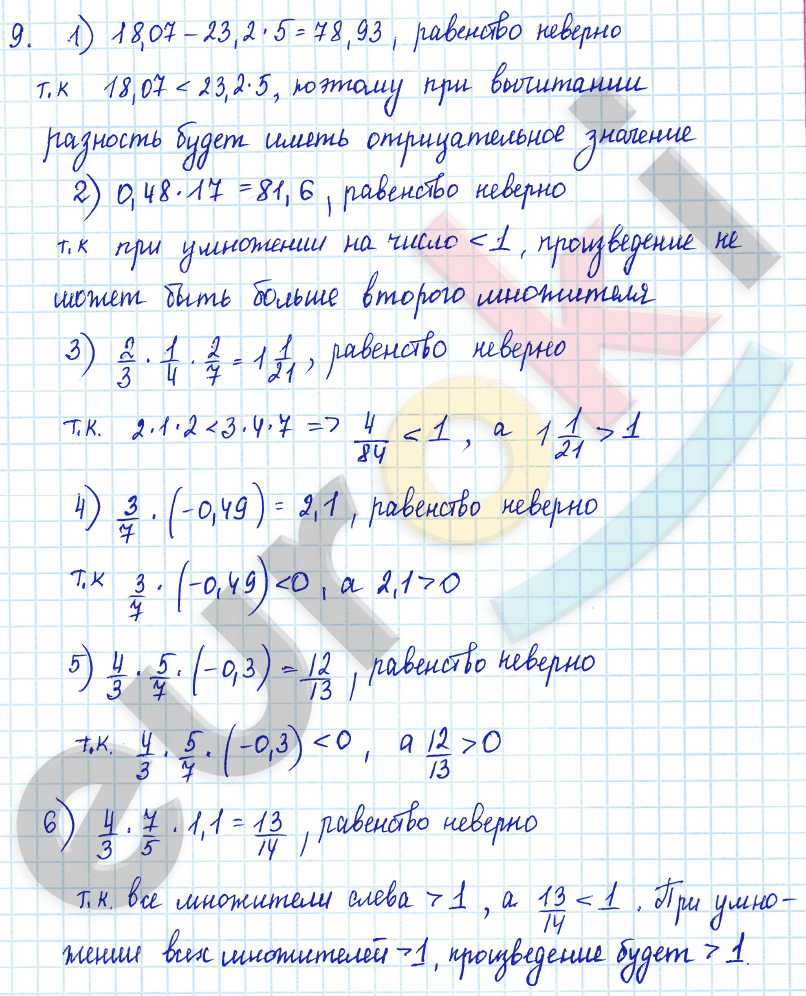 9. 1) 18,07 - 23,2 · 5 = 78,93, равенство неверно
т.к 18,07 < 23,2·5, поэтому при вычитании
разность будет иметь отрицательное значение
2) 0,48 · 17 = 81,6, равенство неверно
т.к при умножении на число < 1, произведение не
может быть больше второго множителя
3) 2/3 · 1/4 · 2/7 = 1 1/21, равенство неверно
т.к. 2·1·2 < 3·4·7 => 4/84 < 1, а 1 1/21 > 1
4) 3/7 · (-0,49) = 2,1, равенство неверно
т.к 3/7 · (-0,49) < 0, а 2,1 > 0
5) 4/3 · 5/7 · (-0,3) = 12/13, равенство неверно
т.к. 4/3 · 5/7 · (-0,3) < 0, а 12/13 > 0
6) 4/3 · 7/5 · 1,1 = 13/14, равенство неверно
т.к. все множители слева > 1, а 13/14 < 1. При умно-
жении всех множителей > 1, произведение будет > 1.
euroki